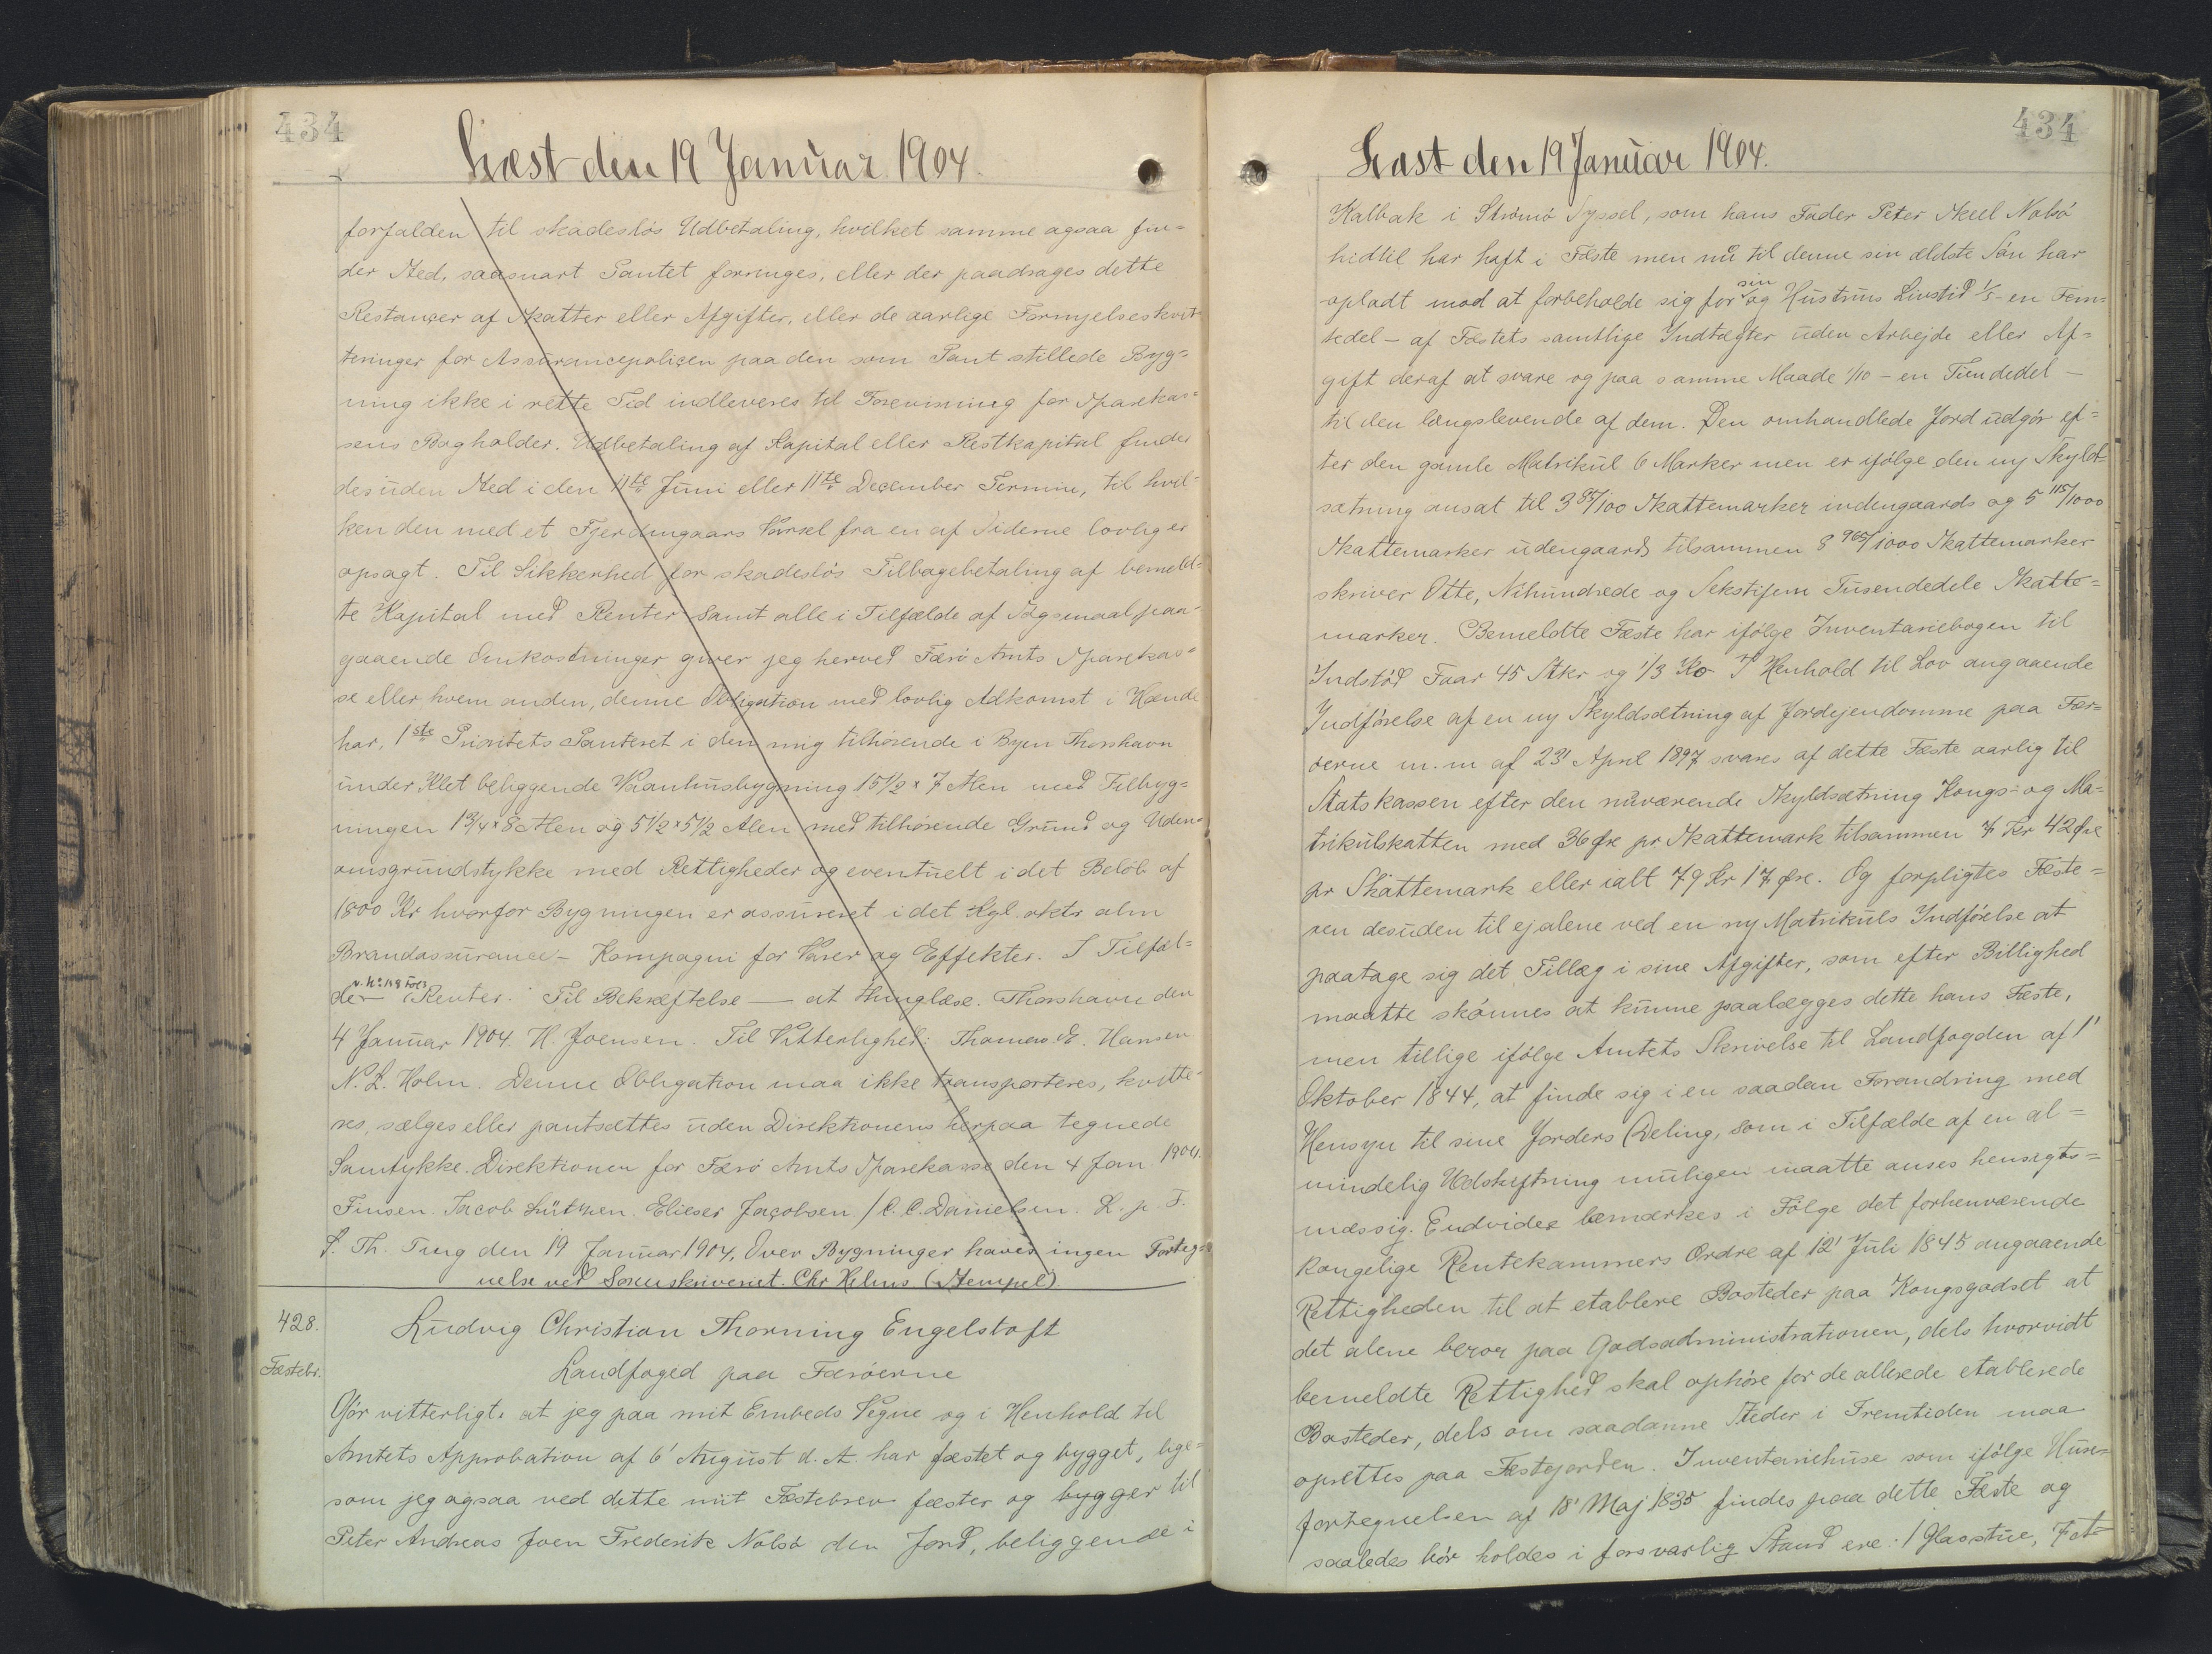 434
Læst den 19 Januar 1904.
forfalden til skadesløs Udbetaling, hvilket samme ogsaa fin=
der Sted, saasnart Pantet forringes, eller der paadrages dette
Restancer af Skatter eller Afgifter, eller de aarlige Fornyelseskvit=
teringer for Assurancepolicen paa den som Pant stillede Byg=
ning ikke i rette Tid indleveres til Forevisning for Sparekas=
sens Bogholder. Udbetaling af Kapital eller Restkapital finder
desuden Sted i den 11te Juni eller 11te December Termin, til hvil=
ken den med et Fjerdingaars Varsel fra en af Siderne lovlig er
opsagt. Til Sikkerhed for skadesløs Tilbagebetaling af bemeld=
te Kapital med Renter samt alle i Tilfælde af Søgsmaal paa=
gaaende Omkostninger giver jeg herved Færø Amts Sparekas=
se eller hvem anden, denne Obligation med lovlig Adkomst i Hænde
har, 1ste Prioritets Panteret i den mig tilhørende i Byen Thorshavn
under Klet beliggende Vaanhusbygning 15½ x 7 Alen med Tilbyg=
ningen 13/4 x 8 Alen og 5½ x 5½ Alen med tilhørende Grund og Uden=
omsgrundstykke med Rettigheder og eventuelt i det Beløb af
1800 Kr hvorfor Bygningen er assureret i det Kgl. oktr alm
Brandassurance- Kompagni for Varer og Effekter. I Tilfæl=
de v. No 148 Fol 3 Renter. Til Bekræftelse — at thinglæse. Thorshavn den
4 Januar 1904. H. Joensen. Til Vitterlighed: Thomas E. Hansen
N. L. Holm. Denne Obligation maa ikke transporteres, kvitte=
res, sælges eller pantsættes uden Direktionens herpaa tegnede
Samtykke. Direktionen for Færø Amts Sparekasse den 4 Jan. 1904.
Finsen. Jacob Lützen. Elieser Jacobsen / C. C. Danielsen. L. p. F.
S. Th. Ting den 19 Januar 1904, Over Bygninger haves ingen Forteg=
nelse ved Sorenskriveriet. Chr Helms (Stempel).
428.
Ludvig Christian Thorning Engelstoft
Fæstebr.
Landfoged paa Færøerne
Gør vitterligt: at jeg paa mit Embeds Vegne og i Henhold til
Amtets Approbation af 6' August d. A. har fæstet og bygget, lige=
som jeg ogsaa ved dette mit Fæstebrev fæster og bygger til
Peter Andreas Joen Frederik Nolsø den Jord, beliggende i
434
Læst den 19 Januar 1904.
Kalbak i Strømø Syssel, som hans Fader Peter Skeel Nolsø
hidtil har haft i Fæste men nu til denne sin ældste Søn har
opladt mod at forbeholde sig for sin og Hustrus Livstid 1/5 - en Fem=
tedel - af Fæstets samtlige Indtægter uden Arbejde eller Af=
gift deraf at svare og paa samme Maade 1/10 - en Tiendedel -
til den længslevende af dem. Den omhandlede Jord udgør ef=
ter den gamle Matrikul 6 Marker men er ifølge den ny Skyld=
sætning ansat til 3 85/100 Skattemarker indengaards og 5 115/1000
Skattemarker udengaards tilsammen 8 965/1000 Skattemarker
skriver Otte, Nihundrede og Sekstifem Tusendedele Skatte=
marker. Bemeldte Fæste har ifølge Inventariebogen til
Indstød Faar 45 Stkr og 1/3 Ko I Henhold til Lov angaaende
Indførelse af en ny Skyldsætning af Jordejendomme paa Fær=
øerne m. m af 23' April 1897 svares af dette Fæste aarlig til
Statskassen efter den nuværende Skyldsætning Kongs- og Ma=
trikulskatten med 36 Øre pr Skattemark tilsammen 7 Kr 42 Øre
pr Skattemark eller ialt 79 Kr 17 Øre. Og forpligtes Fæste=
ren desuden til ej alene ved en ny Matrikuls Indførelse at
paatage sig det Tillæg i sine Afgifter, som efter Billighed
maatte skønnes at kunne paalægges dette hans Fæste,
men tillige ifølge Amtets Skrivelse til Landfogden af 1'
Oktober 1844, at finde sig i en saadan Forandring med
Hensyn til sine Jorders Deling, som i Tilfælde af en al=
mindelig Udskiftning muligen maatte anses hensigts=
mæssig. Endvidee bemærkes i Følge det forhenværende
kongelige Rentekammers Ordre af 12' Juli 1845 angaaende
Rettigheden til at etablere Bosteder paa Kongsgodset at
det alene beror paa Godsadministrationen, dels hvorvidt
bemeldte Rettighed skal ophøre for de allerede etablerede
Bosteder, dels om saadanne Steder i Fremtiden maa
oprettes paa Fæstejorden. Inventariehuse som ifølge Huse=
fortegnelsen af 18' Maj 1835 findes paa dette Fæste og
saaledes bør holdes i forsvarlig Stand ere: 1 Glasstue, 7 et=